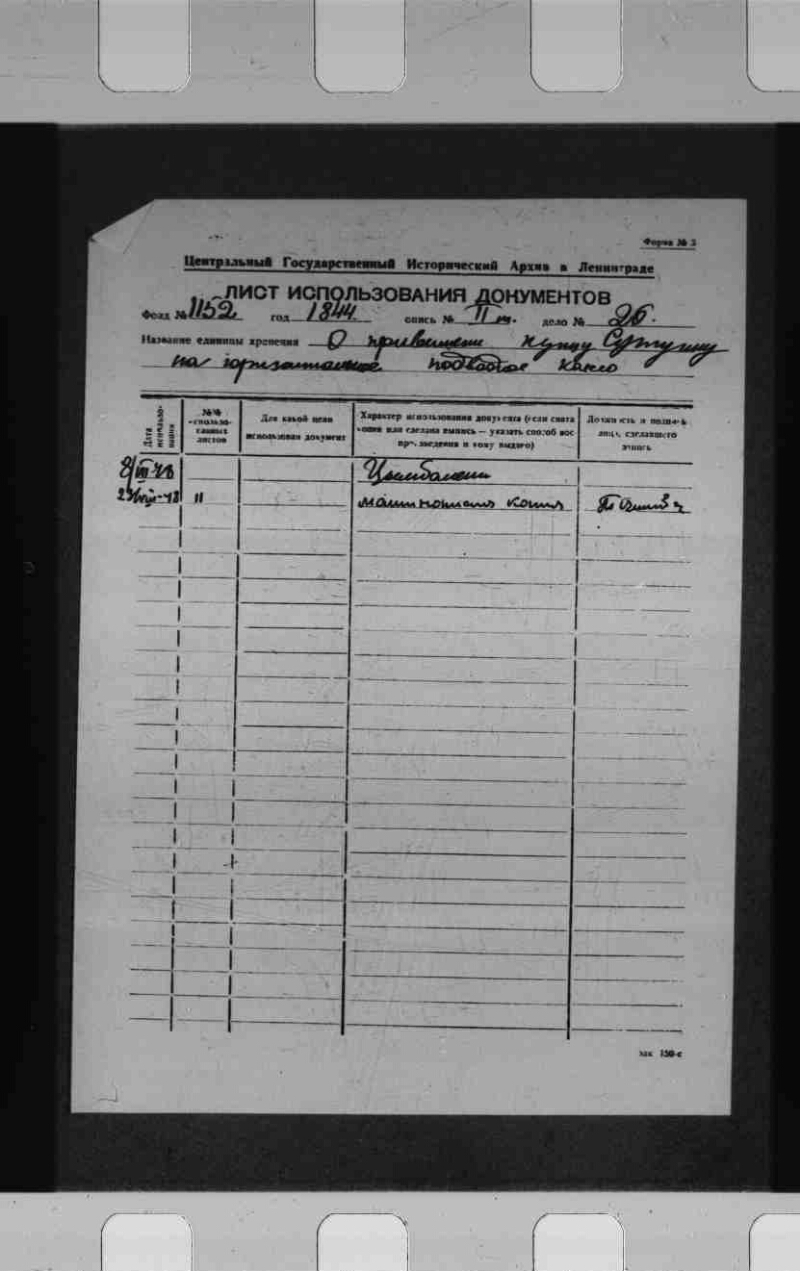 Форма № 3
Центральный Государственный Исторический Архив в Ленинграде
ЛИСТ ИСПОЛЬЗОВАНИЯ ДОКУМЕНТОВ
Фонд № 1152 год 1844 опись № III т. дело № 26.
Название единицы хранения О привилегии купцу
на горизонтальное подводное
Дата использования
№№ использованных листов
Для какой цели использован документ
Характер использования документа (если снята копия или сделана выпись — указать способ воспроизведения и кому выдано)
Должность и подпись лица, сделавшего запись
11 машинописная копия
зак 150-с